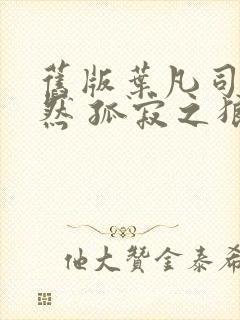 舊版葉凡司
然 孤寂之狼
他大贊金泰希